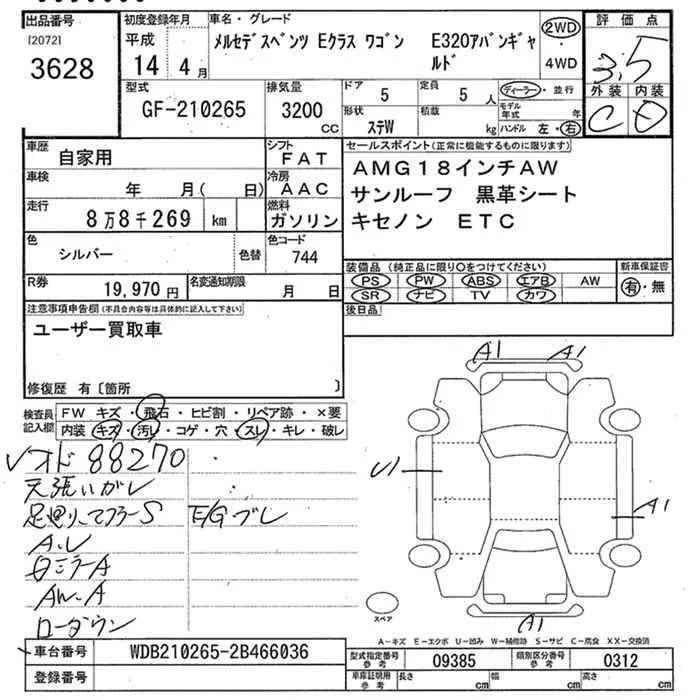 出品番号
[2072]
3628
初度登録年月
平成
14 4 月
車名・グレード
メルセデスベンツ Eクラス ワゴン E320アバンギャルド
2WD
・
4WD
評価点
3.5
外装 内装
C D
型式
GF-210265
排気量
3200
CC
ドア
5
定員
5 人
形状
ステW
積載
kg
ディーラー・並行
モデル年式 年
ハンドル 左・右
車歴
自家用
シフト
FAT
車検
年 月( 日)
冷房
AAC
走行
8万8千269 km
燃料
ガソリン
色
シルバー
色替
色コード
744
R券
19,970 円
名変通知期限
月 日
セールスポイント(正常に機能するものに限ります)
AMG18インチAW
サンルーフ 黒革シート
キセノン ETC
装備品 (純正品に限り○をつけてください)
新車保証書
PS PW ABS エアB AW
SR ナビ TV カワ
有・無
後日品
注意事項申告欄(不具合内容等は具体的に記入して下さい)
ユーザー買取車
修復歴 有〔箇所 〕
検査員記入欄
FW キズ・飛石・ヒビ割・リペア跡・×要
内装 キズ・汚レ・コゲ・穴・スレ・キレ・破レ
オド 88270
天張いがレ
足廻り、マフラーS E/Gブレ
A.U
ミラーA
AW.A
ローダウン
A1 A1
U1
A1
A1
スペア
A-キズ E-エクボ U-凹み W-補修跡 S-サビ C-腐食 XX-交換済
車台番号
WDB210265-2B466036
登録番号
型式指定番号 参考
09385
類別区分番号 参考
0312
車庫証明用 参考
長さ cm 幅 cm 高さ cm